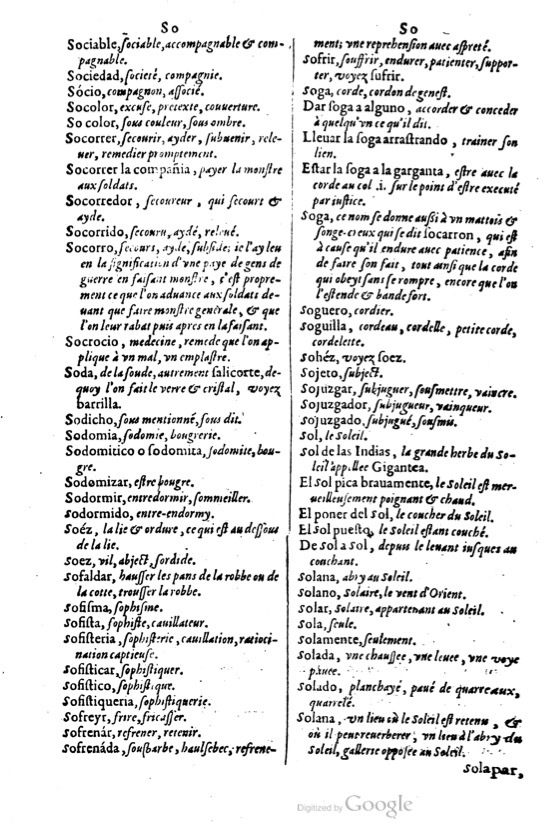 So
Sociable, sociable, accompagnable & com-
pagnable.
Sociedad, societé, compagnie.
Sócio, compagnon, associé.
Socolor, excuse, pretexte, couuerture.
So color, sous couleur, sous ombre.
Socorrer, secourir, ayder, subuenir, rele-
uer, remedier promptement.
Socorrer la compañia, payer la monstre
aux soldats.
Socorredor, secoureur, qui secourt &
ayde.
Socorrido, secouru, aydé, releué.
Socorro, secours, ayde, subside; ie l'ay leu
en la signification d'vne paye de gens de
guerre en faisant monstre, c'est propre-
ment ce que l'on aduance aux soldats de-
uant que faire monstre generale, & que
l'on leur rabat puis apres en la faisant.
Socrocio, medecine, remede que l'on ap-
plique à vn mal, vn emplastre.
Soda, de la soude, autrement salicorte, de-
quoy l'on fait le verre & cristal, voyez
barrilla.
Sodicho, sous mentionné, sous dit.
Sodomia, sodomie, bougrerie.
Sodomitico o sodomita, sodomite, bou-
gre.
Sodomizar, estre bougre.
Sodormir, entredormir, sommeiller.
sodormido, entre-endormy.
Soéz, la lie & ordure, ce qui est au dessous
de la lie.
Soez, vil, abject, sordide.
sofaldar, hausser les pans de la robbe ou de
la cotte, trousser la robbe.
Sofisma, sophisme.
Sofista, sophiste, cauillateur.
Sofisteria, sophisterie, cauillation, ratioci-
nation captieuse.
Sofisticar, sophistiquer.
Sofistico, sophistique.
Sofistiqueria, sophistiquerie.
Sofreyr, frire, fricasser.
Sofrenár, refrener, retenir.
Sofrenáda, sousbarbe, haulsebec, refrene-
So
ment; vne reprehension auec aspreté.
Sofrir, souffrir, endurer, patienter, suppor-
ter, voyez sufrir.
Soga, corde, cordon de genest.
Dar soga a alguno, accorder & conceder
à quelqu'vn ce qu'il dit.
Lleuar la soga arrastrando, trainer son
lien.
Estar la soga a la garganta, estre auec la
corde au col .i. sur le point d'estre executé
par iustice.
Soga, ce nom se donne aussi à vn mattois &
songe-creux qui se dit socarron, qui est
à cause qu'il endure auec patience, afin
de faire son fait, tout ainsi que la corde
qui obeyt sans se rompre, encore que l'on
l'estende & bande fort.
Soguero, cordier.
soguilla, cordeau, cordelle, petite corde,
cordelette.
sohéz, voyez soez.
Sojeto, subject.
Sojuzgar, subjuguer, sousmettre, vaincre.
Sojuzgador, subjugueur, vainqueur.
sojuzgado, subjugué, sousmis.
Sol, le Soleil.
Sol de las Indias, la grande herbe du So-
leil appellee Gigantea.
El Sol pica brauamente, le Soleil est mer-
ueilleusement poignant & chaud.
El poner del Sol, le coucher du Soleil.
El Sol puesto, le Soleil estant couché.
De sol a sol, depuis le leuant iusques au
couchant.
Solana, abry au Soleil.
Solano, Solaire, le vent d'Orient.
Solar, Solaire, appartenant au Soleil.
Sola, seule.
Solamente, seulement.
Solada, vne chaussee, vne leuee, vne voye
pauee.
Solado, planchayé, paué de quarreaux,
quarrelé.
Solana, vn lieu où le Soleil est retenu, &
où il peut reuerberer, vn lieu à l'abry du
Soleil, gallerie opposée au Soleil.
solapar,
Digitized by Google